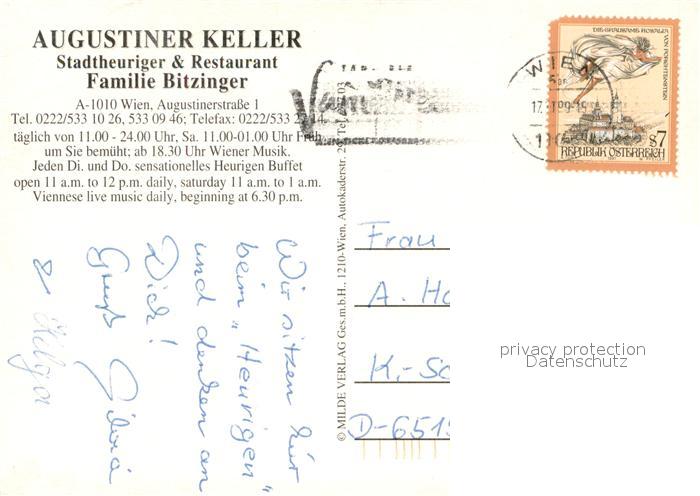 AUGUSTINER KELLER
Stadtheuriger & Restaurant
Familie Bitzinger
A-1010 Wien, Augustinerstraße 1
Tel. 0222/533 10 26, 533 09 46; Telefax: 0222/533
täglich von 11.00 - 24.00 Uhr, Sa. 11.00-01.00 Uhr Früh
um Sie bemüht; ab 18.30 Uhr Wiener Musik.
Jeden Di. und Do. sensationelles Heurigen Buffet
open 11 a.m. to 12 p.m. daily, saturday 11 a.m. to 1 a.m.
Viennese live music daily, beginning at 6.30 p.m.
Wir sitzen hier
beim „Heurigen"
und denken an
Dich!
Gruß
& Helga
© MILDE VERLAG Ges.m.b.H., 1210-Wien, Autokaderstr.
TAG DER
WIEN
DIE GRAUSAME ROSALIA
VON FORCHTENSTEIN
S7
REPUBLIK ÖSTERREICH
Frau
A. Ho
K.-Sc
D-6515
privacy protection
Datenschutz